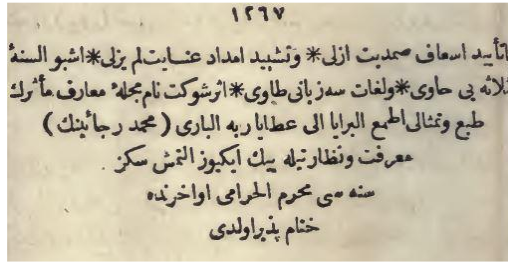 ١٢٦٧
بتأييد اسعاف صمديت ازلى * وتشييد امداد عنايت لم يزلى * اشبو السنۀ
ثلاثه يى حاوى * ولغات سه زبانى طاوى * اثر شوكت نام مجلۀ معارف مأثرك
طبع وتمثالى اطمع البرايا الى عطايا ربه البارى ( محمد رجائينك )
معرفت ونظارتيله بيك ايكيوز التمش سكز
سنه سى محرم الحرامى اواخرنده
ختام پذير اولدى